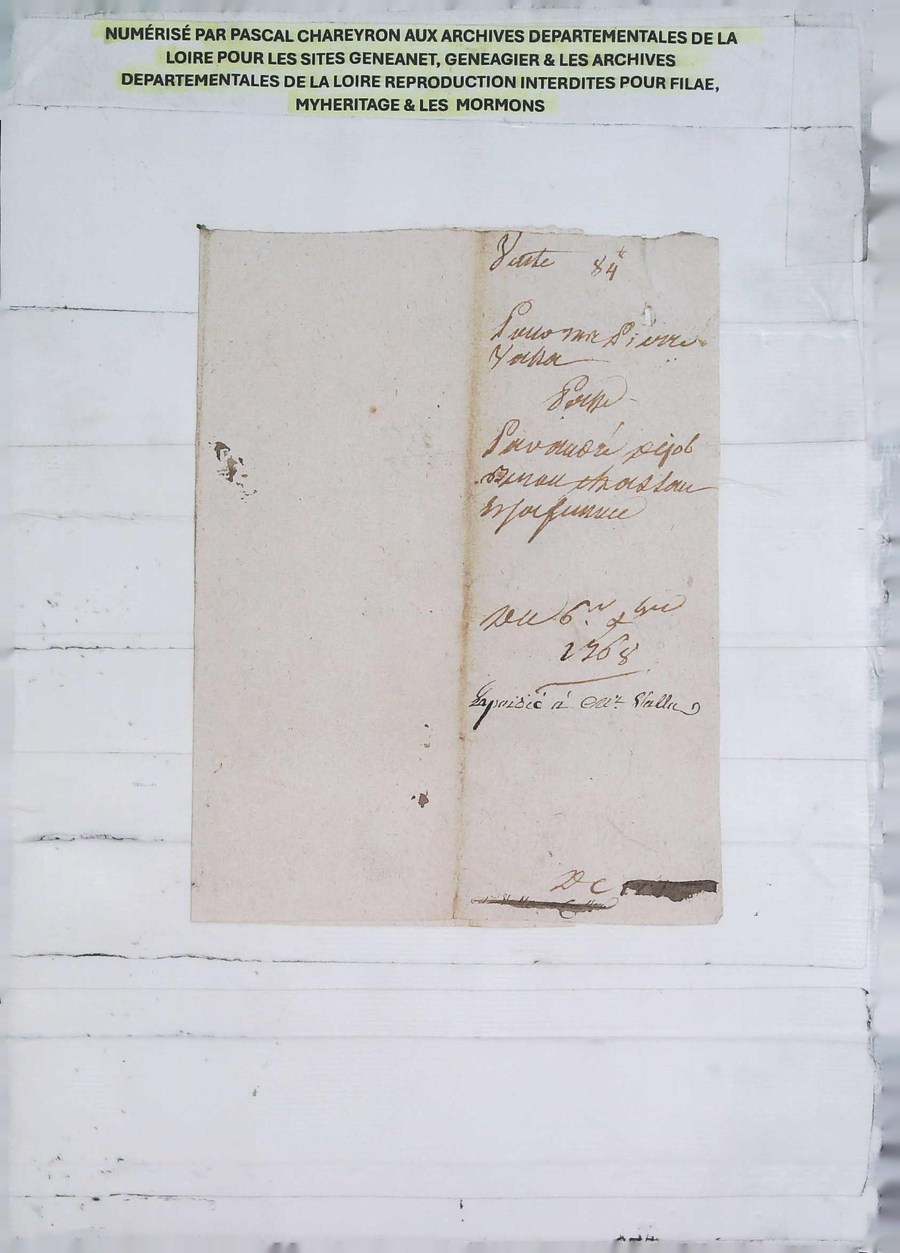 NUMÉRISÉ PAR PASCAL CHAREYRON AUX ARCHIVES DEPARTEMENTALES DE LA
LOIRE POUR LES SITES GENEANET, GENEAGIER & LES ARCHIVES
DEPARTEMENTALES DE LA LOIRE REPRODUCTION INTERDITES POUR FILAE,
MYHERITAGE & LES MORMONS
Vente 84
Pour mr Pierre
Valla
Passé
Par andré dejob
Du 6
1768
Expedié à Mr Valla